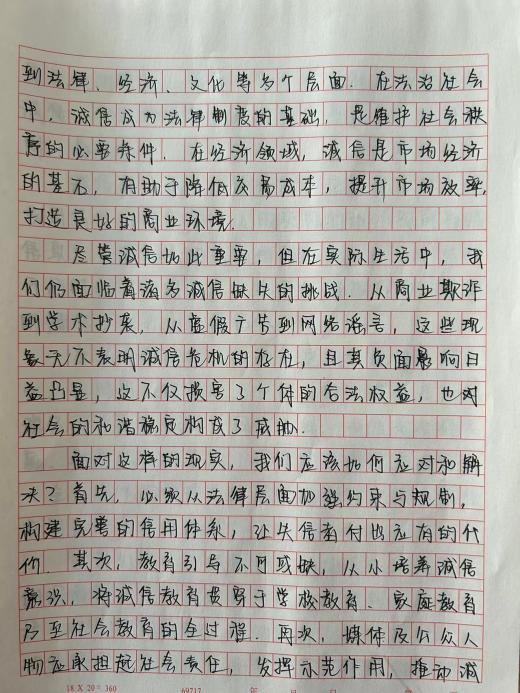 到法律、经济、文化等多个层面. 在法治社会
中, 诚信成为法律制度的基础, 是维护社会秩
序的必要条件. 在经济领域, 诚信是市场经济
的基石, 有助于降低交易成本, 提升市场效率,
打造良好的商业环境.
尽管诚信如此重要, 但在实际生活中, 我
们仍面临着诸多诚信缺失的挑战. 从商业欺诈
到学术抄袭, 从虚假广告到网络谣言, 这些现
象无不表明诚信危机的存在, 且其负面影响日
益凸显, 这不仅损害了个体的合法权益, 也对
社会的和谐稳定构成了威胁.
面对这样的现实, 我们应该如何应对和解
决? 首先, 必须从法律层面加强约束与规制,
构建完善的信用体系, 让失信者付出应有的代
价. 其次, 教育引导不可或缺, 从小培养诚信
意识, 将诚信教育贯穿于学校教育、家庭教育
乃至社会教育的全过程. 再次, 媒体及公众人
物应承担起社会责任, 发挥示范作用, 推动诚
18 X 20 = 360 69717 年 月 日